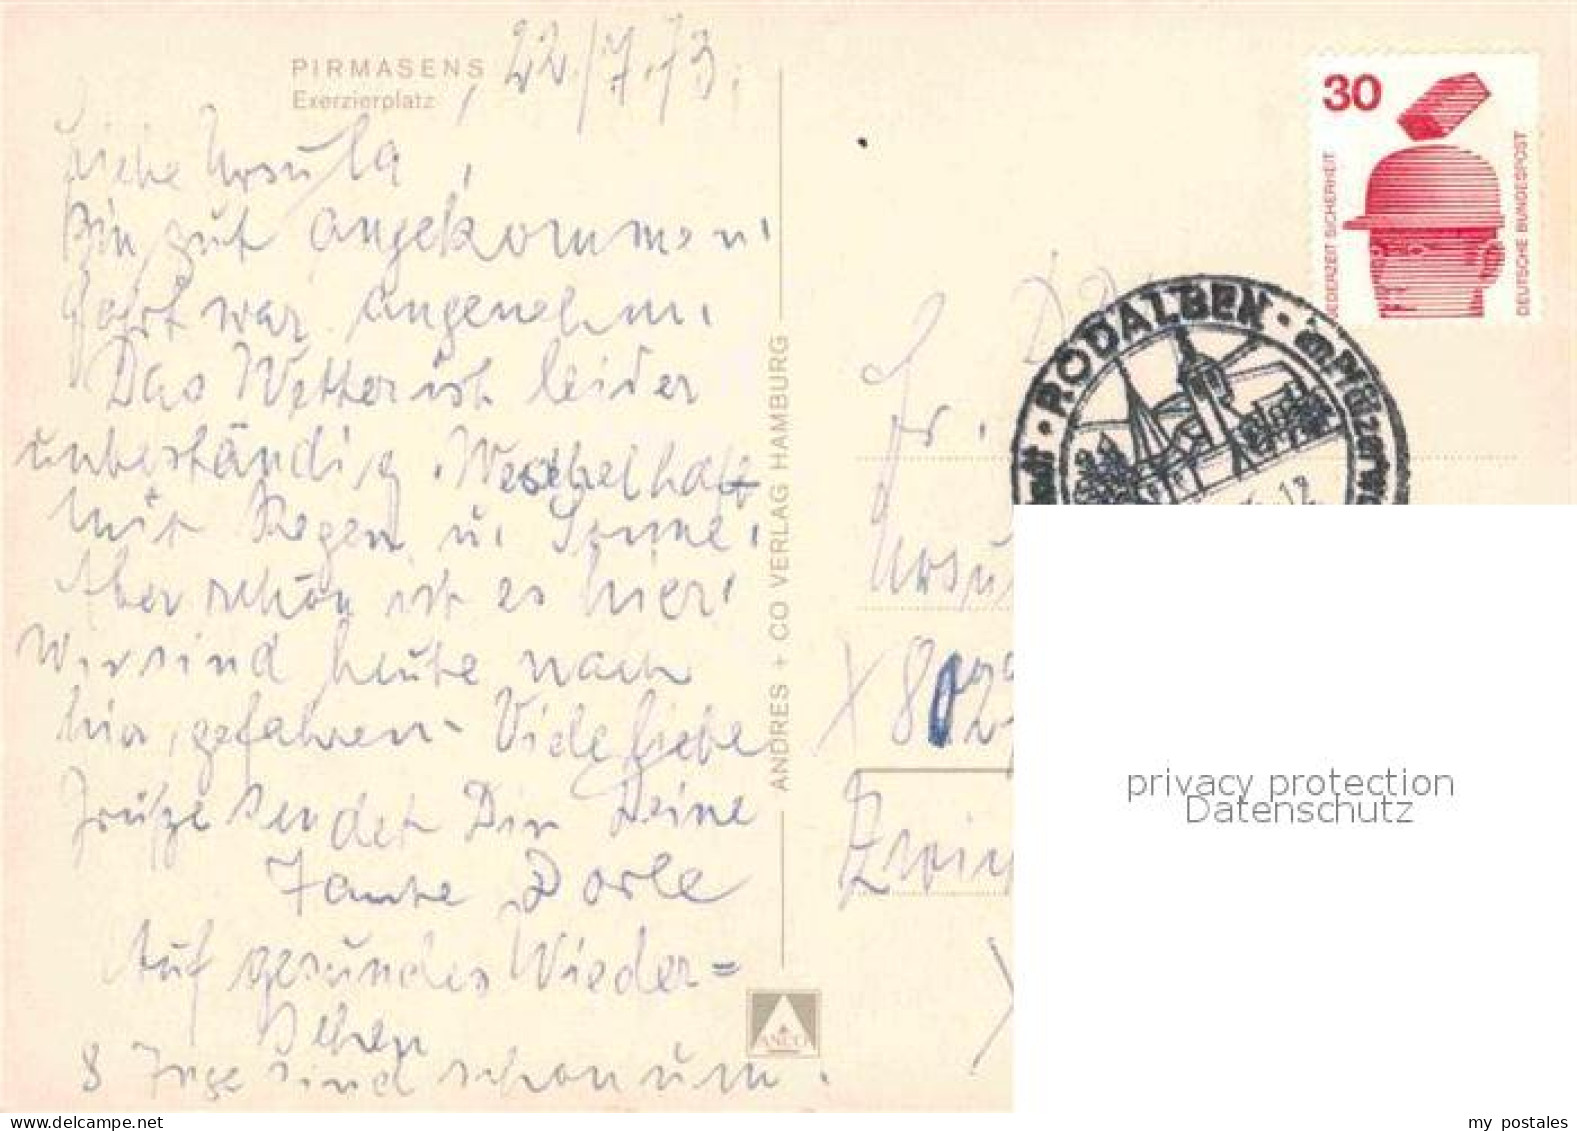 PIRMASENS
Exerzierplatz
22./7.73.
Liebe Ursula,
Bin gut angekommen.
Fahrt war angenehm.
Das Wetter ist leider
unbeständig. Wechelhaft
mit Regen u. Sonne.
Aber schön ist es hier!
Wir sind heute nach
hier gefahren. Viele liebe
Grüße sendet Dir Deine
Tante Dorle
Auf gesundes Wieder=
sehen
8 Tage sind schon um.
ANDRES + CO VERLAG HAMBURG
ANCO
30
JEDERZEIT SICHERHEIT
DEUTSCHE BUNDESPOST
RODALBEN · im Pfälzerw
Fr.
Ursu
X 8029
Zwic
privacy protection
Datenschutz
my postales